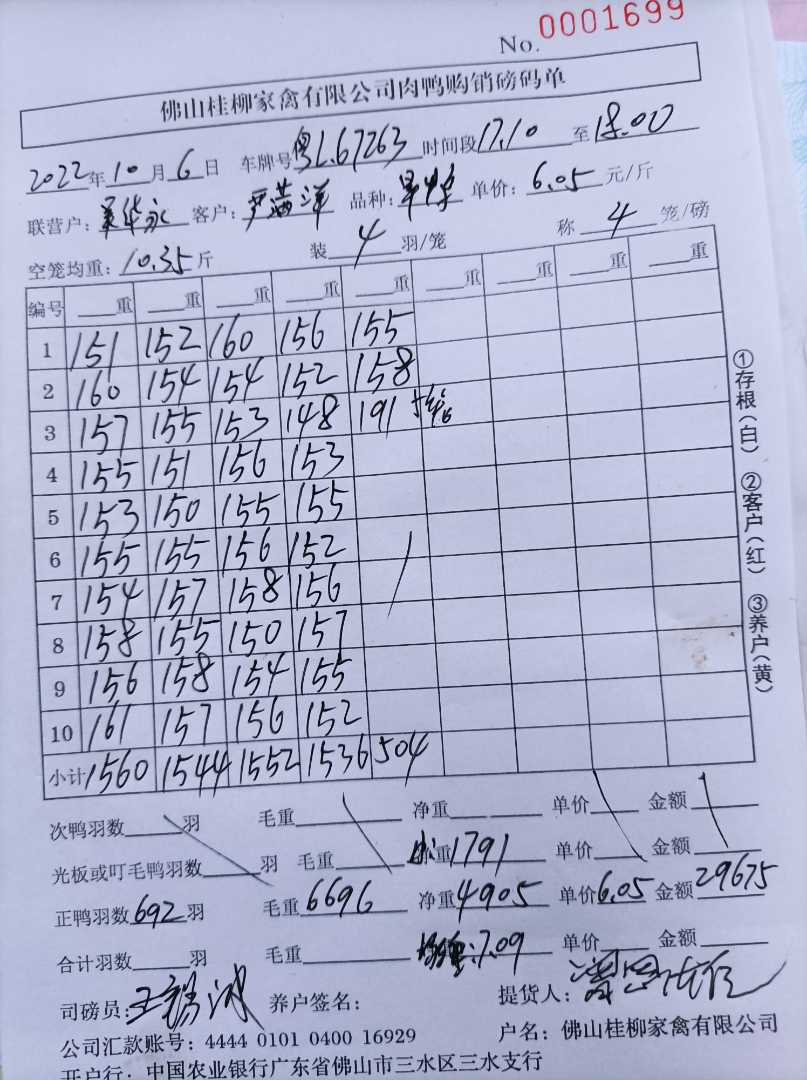 No. 0001699
佛山桂柳家禽有限公司肉鸭购销磅码单
2022年10月6日 车牌号粤L.67263 时间段17.10至18.00
联营户: 客户:严满洋 品种: 单价:6.05元/斤
空笼均重:10.35斤 装4羽/笼 称4笼/磅
编号 重 重 重 重 重 重 重 重 重
1 151 152 160 156 155
2 160 154 154 152 158
3 157 155 153 148 191
4 155 151 156 153
5 153 150 155 155
6 155 155 156 152
7 154 157 158 156
8 158 155 150 157
9 156 158 154 155
10 161 157 156 152
小计 1560 1544 1552 1536 504
次鸭羽数 羽 毛重 净重 单价 金额
光板或叮毛鸭羽数 羽 毛重 重1791 单价 金额
正鸭羽数692羽 毛重6696 净重4905 单价6.05 金额29675
合计羽数 羽 毛重 7.09 单价 金额
司磅员: 养户签名: 提货人:
公司汇款账号: 4444 0101 0400 16929 户名: 佛山桂柳家禽有限公司
开户行: 中国农业银行广东省佛山市三水区三水支行
①存根(白) ②客户(红) ③养户(黄)